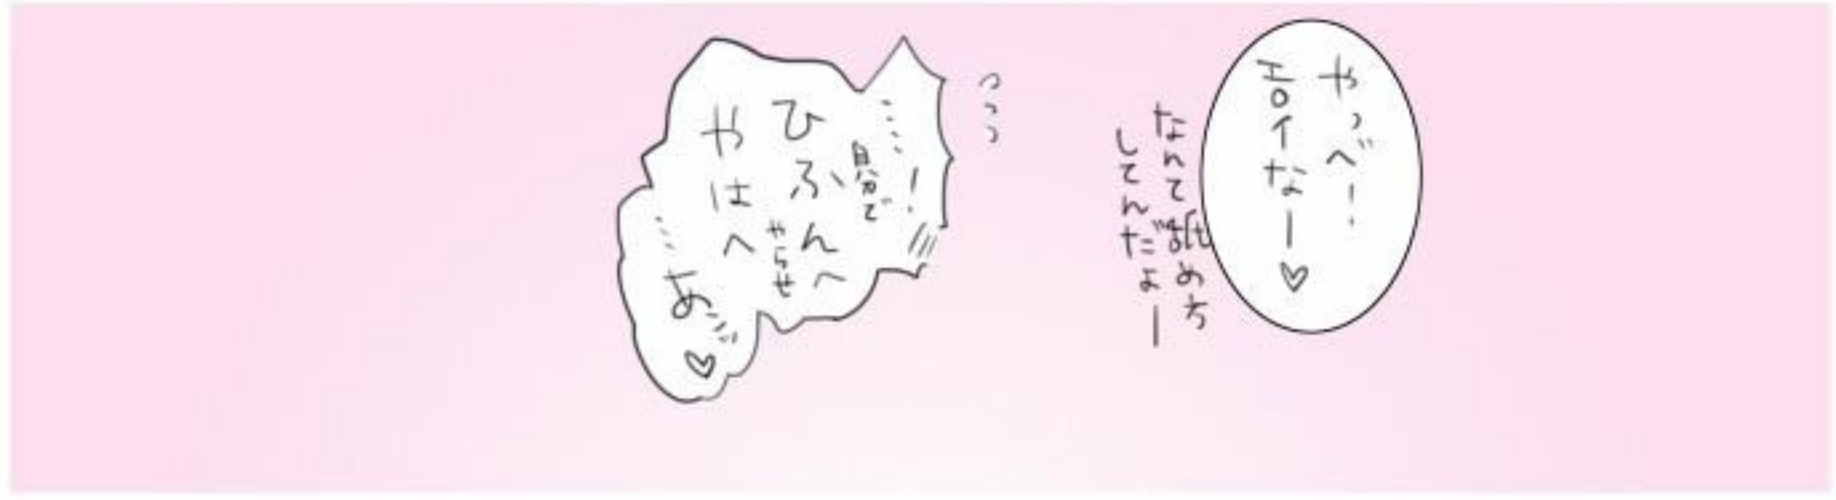 やっべ!
エロイなー♡
なんて舐め方
してんだよー
っっっ
……!
自分で
ひふんへ
やらせ
やはへ
……あ…♡